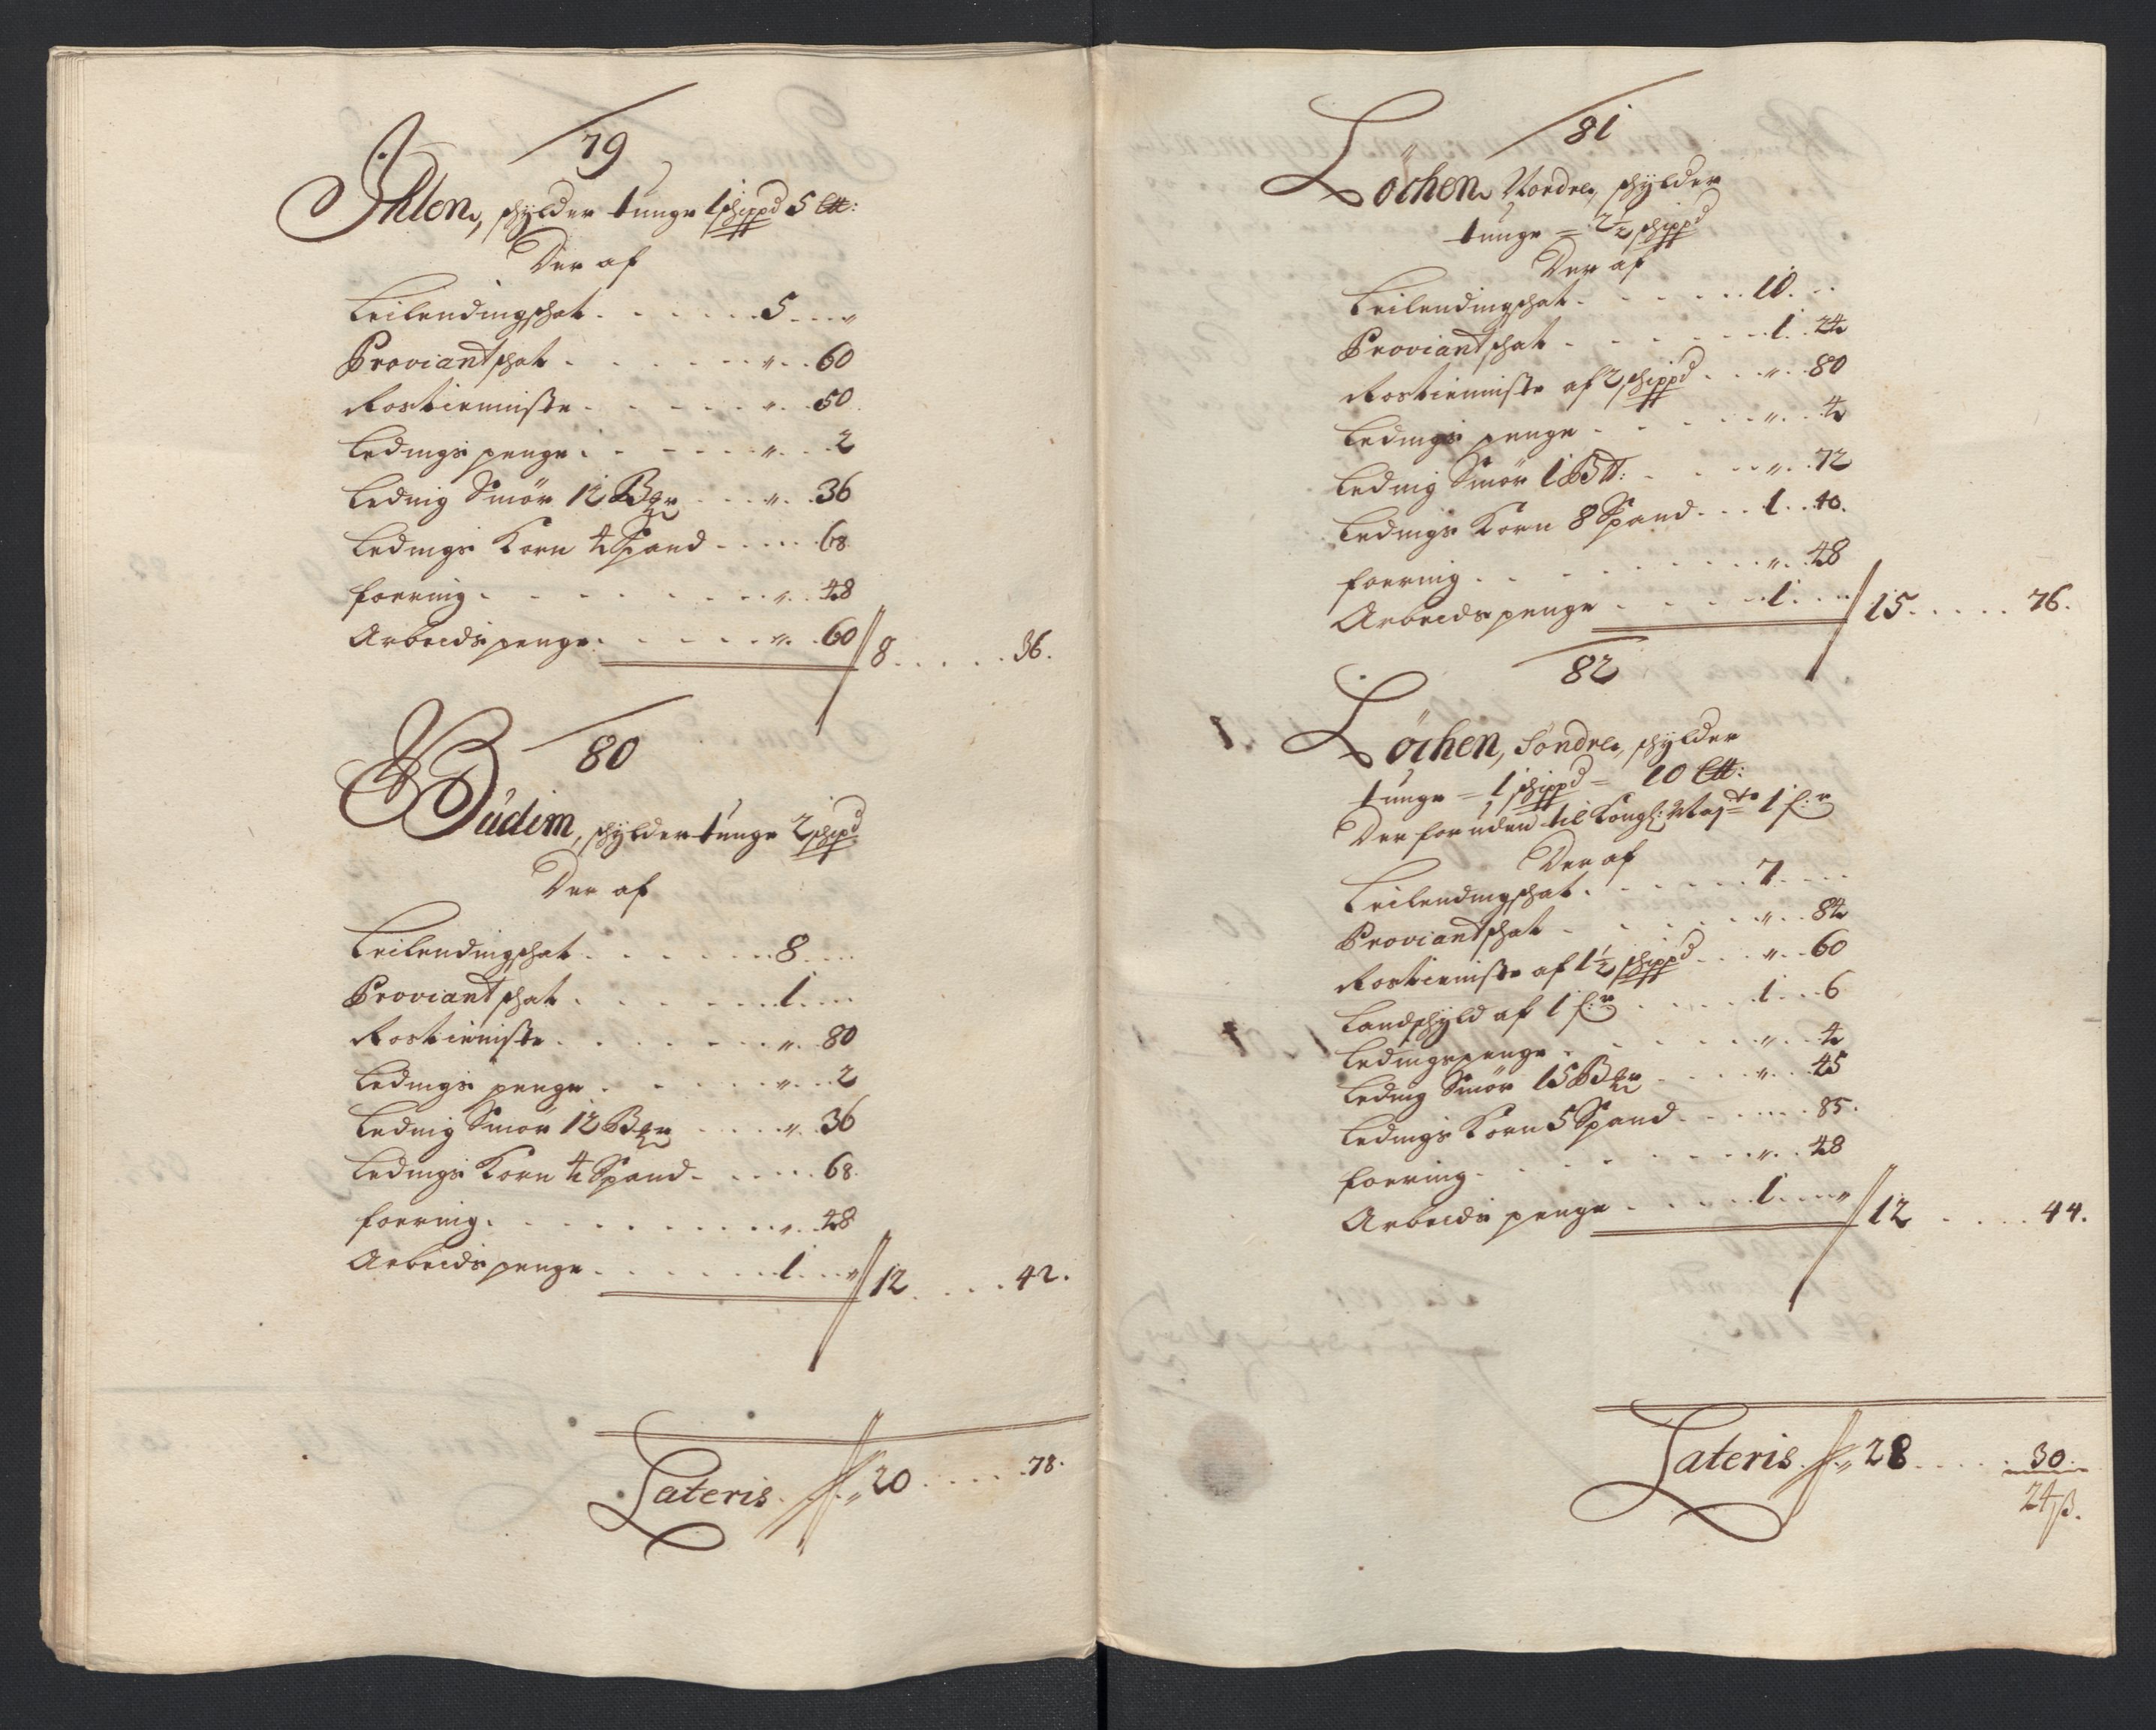 79
Ihlen, schylder tunge 1 schippd 5 L℔:
Der af
Leilendingschat . . . . . . 5 . . . "
Proviantschat . . . . . . " . . 60
Rostienniste . . . . . " . . 50
Ledings penge . . . . . . " . . 2
Leding Smør 12 Bger . . . " . . 36
Ledings Korn 4 Spand . . . . . 68.
foering . . . . . . . . " . . 48
Arbeidspenge . . . . . " . . 60 // 8 . . . . . 36.
80
Büdim, schylder tunge 2 schipd
Der af
Leilendingschat . . . . . . . 8 . . .
Proviantschat . . . . . . . 1 . . .
Rostienniste . . . . . . . " . . 80
Ledings penge . . . . . . " . . 2
Leding Smør 12 Bger . . . . " . . 36
Ledings Korn 4 Spand . . . . . 68.
foering . . . . . . . . . . " . . 48
Arbeids penge . . . . . . . 1 . . . " // 12 . . . . 42.
Lateris . // " 20 . . . . . 78.
81
Löchen Nordre, schylder
tunge = 2½ schippd
Der af
Leilendingschat . . . . . . 10. . .
Proviantschat . . . . . . . 1 . . 24
Rostienniste af 2 schippd . . . " . . 80
Ledings penge . . . . . . " . . 4
Leding Smør 1 B℔: . . . . " . . 72
Ledings Korn 8 Spand . . . 1 . . 40.
foering . . . . . . . . . " . . 48
Arbeidspenge . . . . . 1 . . . // 15. . . . . 76.
82
Löchen, Söndre, schylder
tunge = 1 schippd = 10 L℔:
Der foruden til Kongl: Maÿts 1 f:r
Der af
Leilendingschat . . . . . . . 7. . . .
Proviantschat . . . . . . " . . 84
Rostienniste af 1½ schippd . . . " . . 60
Landschyld af 1 f:r . . . . . 1 . . . 6
Ledingspenge . . . . . . . " . . 4
Leding Smør 15 Bger . . . . " . . 45
Ledings Korn 5 Spand . . . . . 85.
foering . . . . . . . . . " . . 48
Arbeids penge . . . . . 1 . . . " // 12 . . . . 44.
Lateris . // " 28 . . . . . 30.
24 ß.